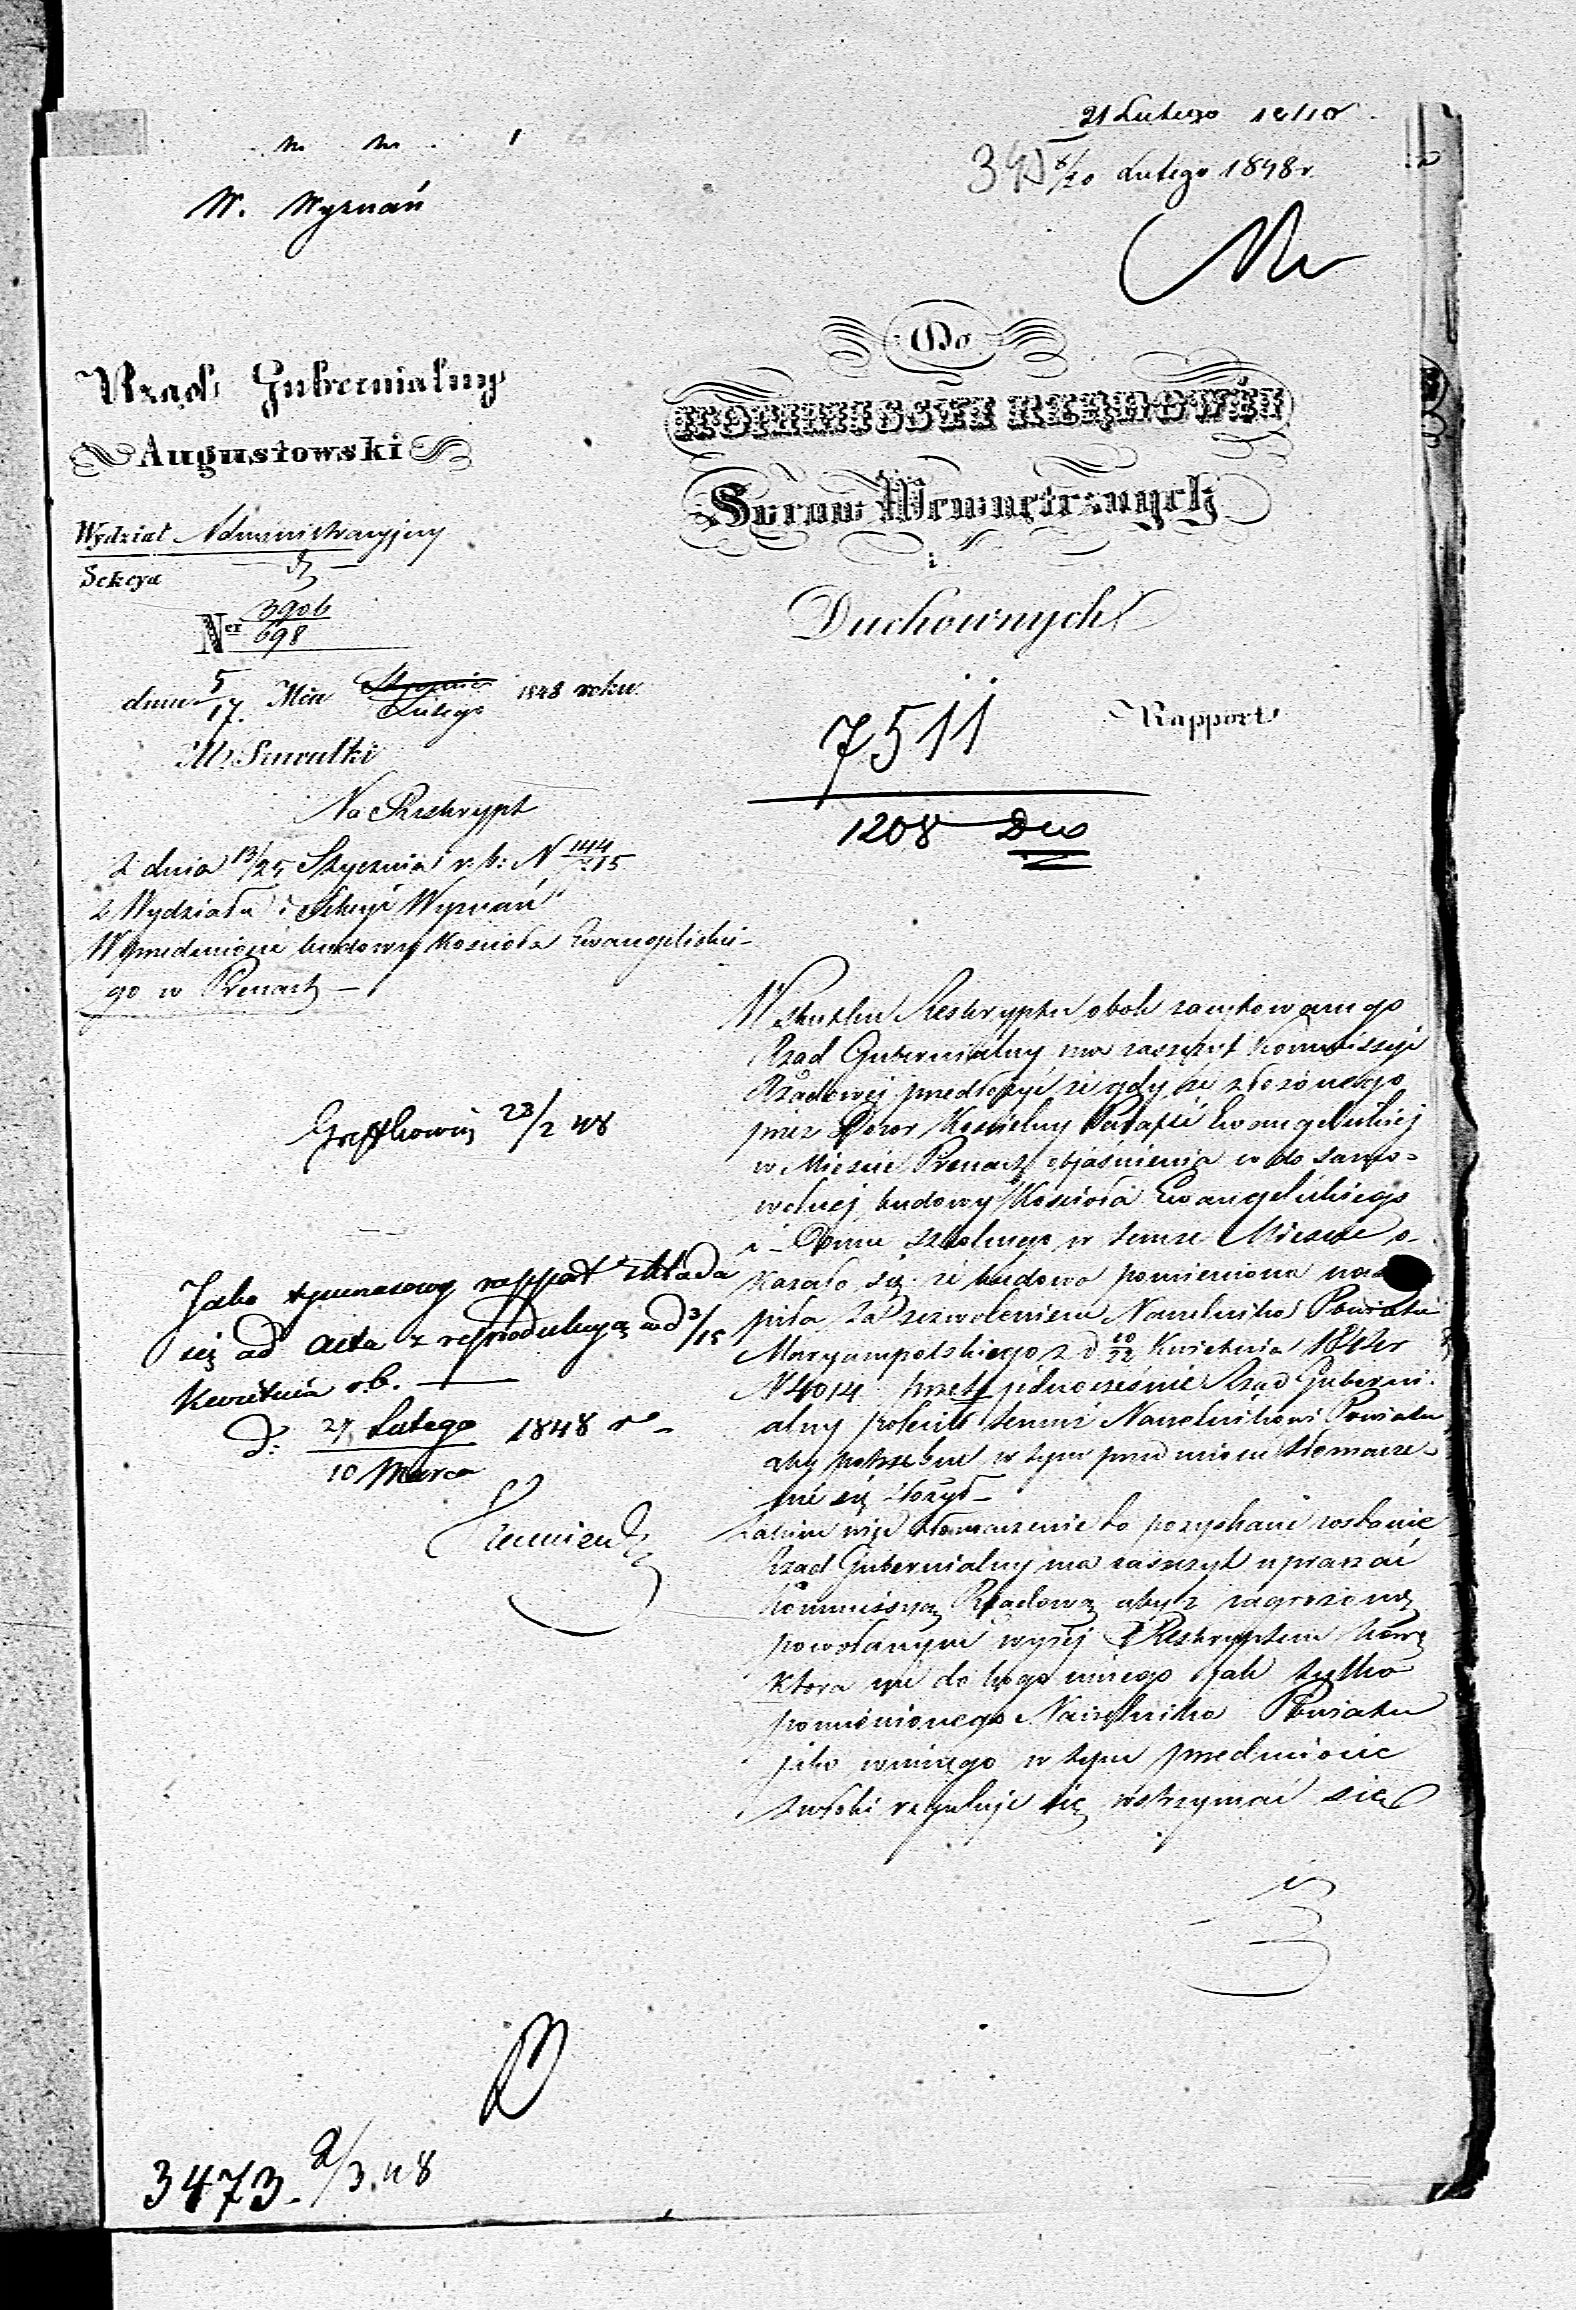 21 Lutego
8/20 Lutego 1848 r.
W. Wyznań
Rząd Gubernialny
Augustowski
Wydział Administracyjny
Sekcya
Ner 3906/698
dnia 5/17. Mca Stycznia Lutego 1848 roku
W Suwałki
Na Reskrypt
z dnia 13/25 Stycznia r. b: N 144/715
z Wydziału i Sekcyi Wyznań
W przedmiocie budowy Kościoła Ewangelickie-
go w Prenach —
Do
KOMMISSYI RZĄDOWÉJ
Spraw Wewnętrznych
i
Duchownych
Rapport
7511
1208
W skutku Reskryptu obok zacytowanego
Rząd Gubernialny ma zaszczyt Kommissyi
Rządowej przedłożyć że gdy ze złożonego
przez Dozor Kościelny Parafii Ewangelickiej
w Mieście Prenach objaśnienia co do samo-
wolnej budowy Kościoła Ewangelickiego
i Domu szkolnego w temże Mieście o-
kazało się że budowa pomieniona nastą
piła za zezwoleniem Naczelnika Powiatu
Maryampolskiego z d 10/22 Kwietnia 1842 r
N 4014 przeto jednocześnie Rząd Guberni-
alny polecił temuż Naczelnikowi Powiatu
aby potrzebne w tym przedmiocie tłomacze-
nie się złożył —
zanim więc tłomaczenie to pozyskane zostanie
Rząd Gubernialny ma zaszczyt upraszać
Kommissyą Rządową aby z zagrożoną
powołanym wyżej Reskryptem karą
która nie do kogo innego jak tylko
pomienionego Naczelnika Powiatu
jako winnego w tym przedmiocie
zwłoki reguluje się wstrzymać się
23/2 48
Jako tymczasowy rapport składa
się ad acta z reprodukcyą na d 3/15
Kwietnia r. b. —
d: 27 Lutego / 10 Marca 1848 ro —
3473. 2/3.48